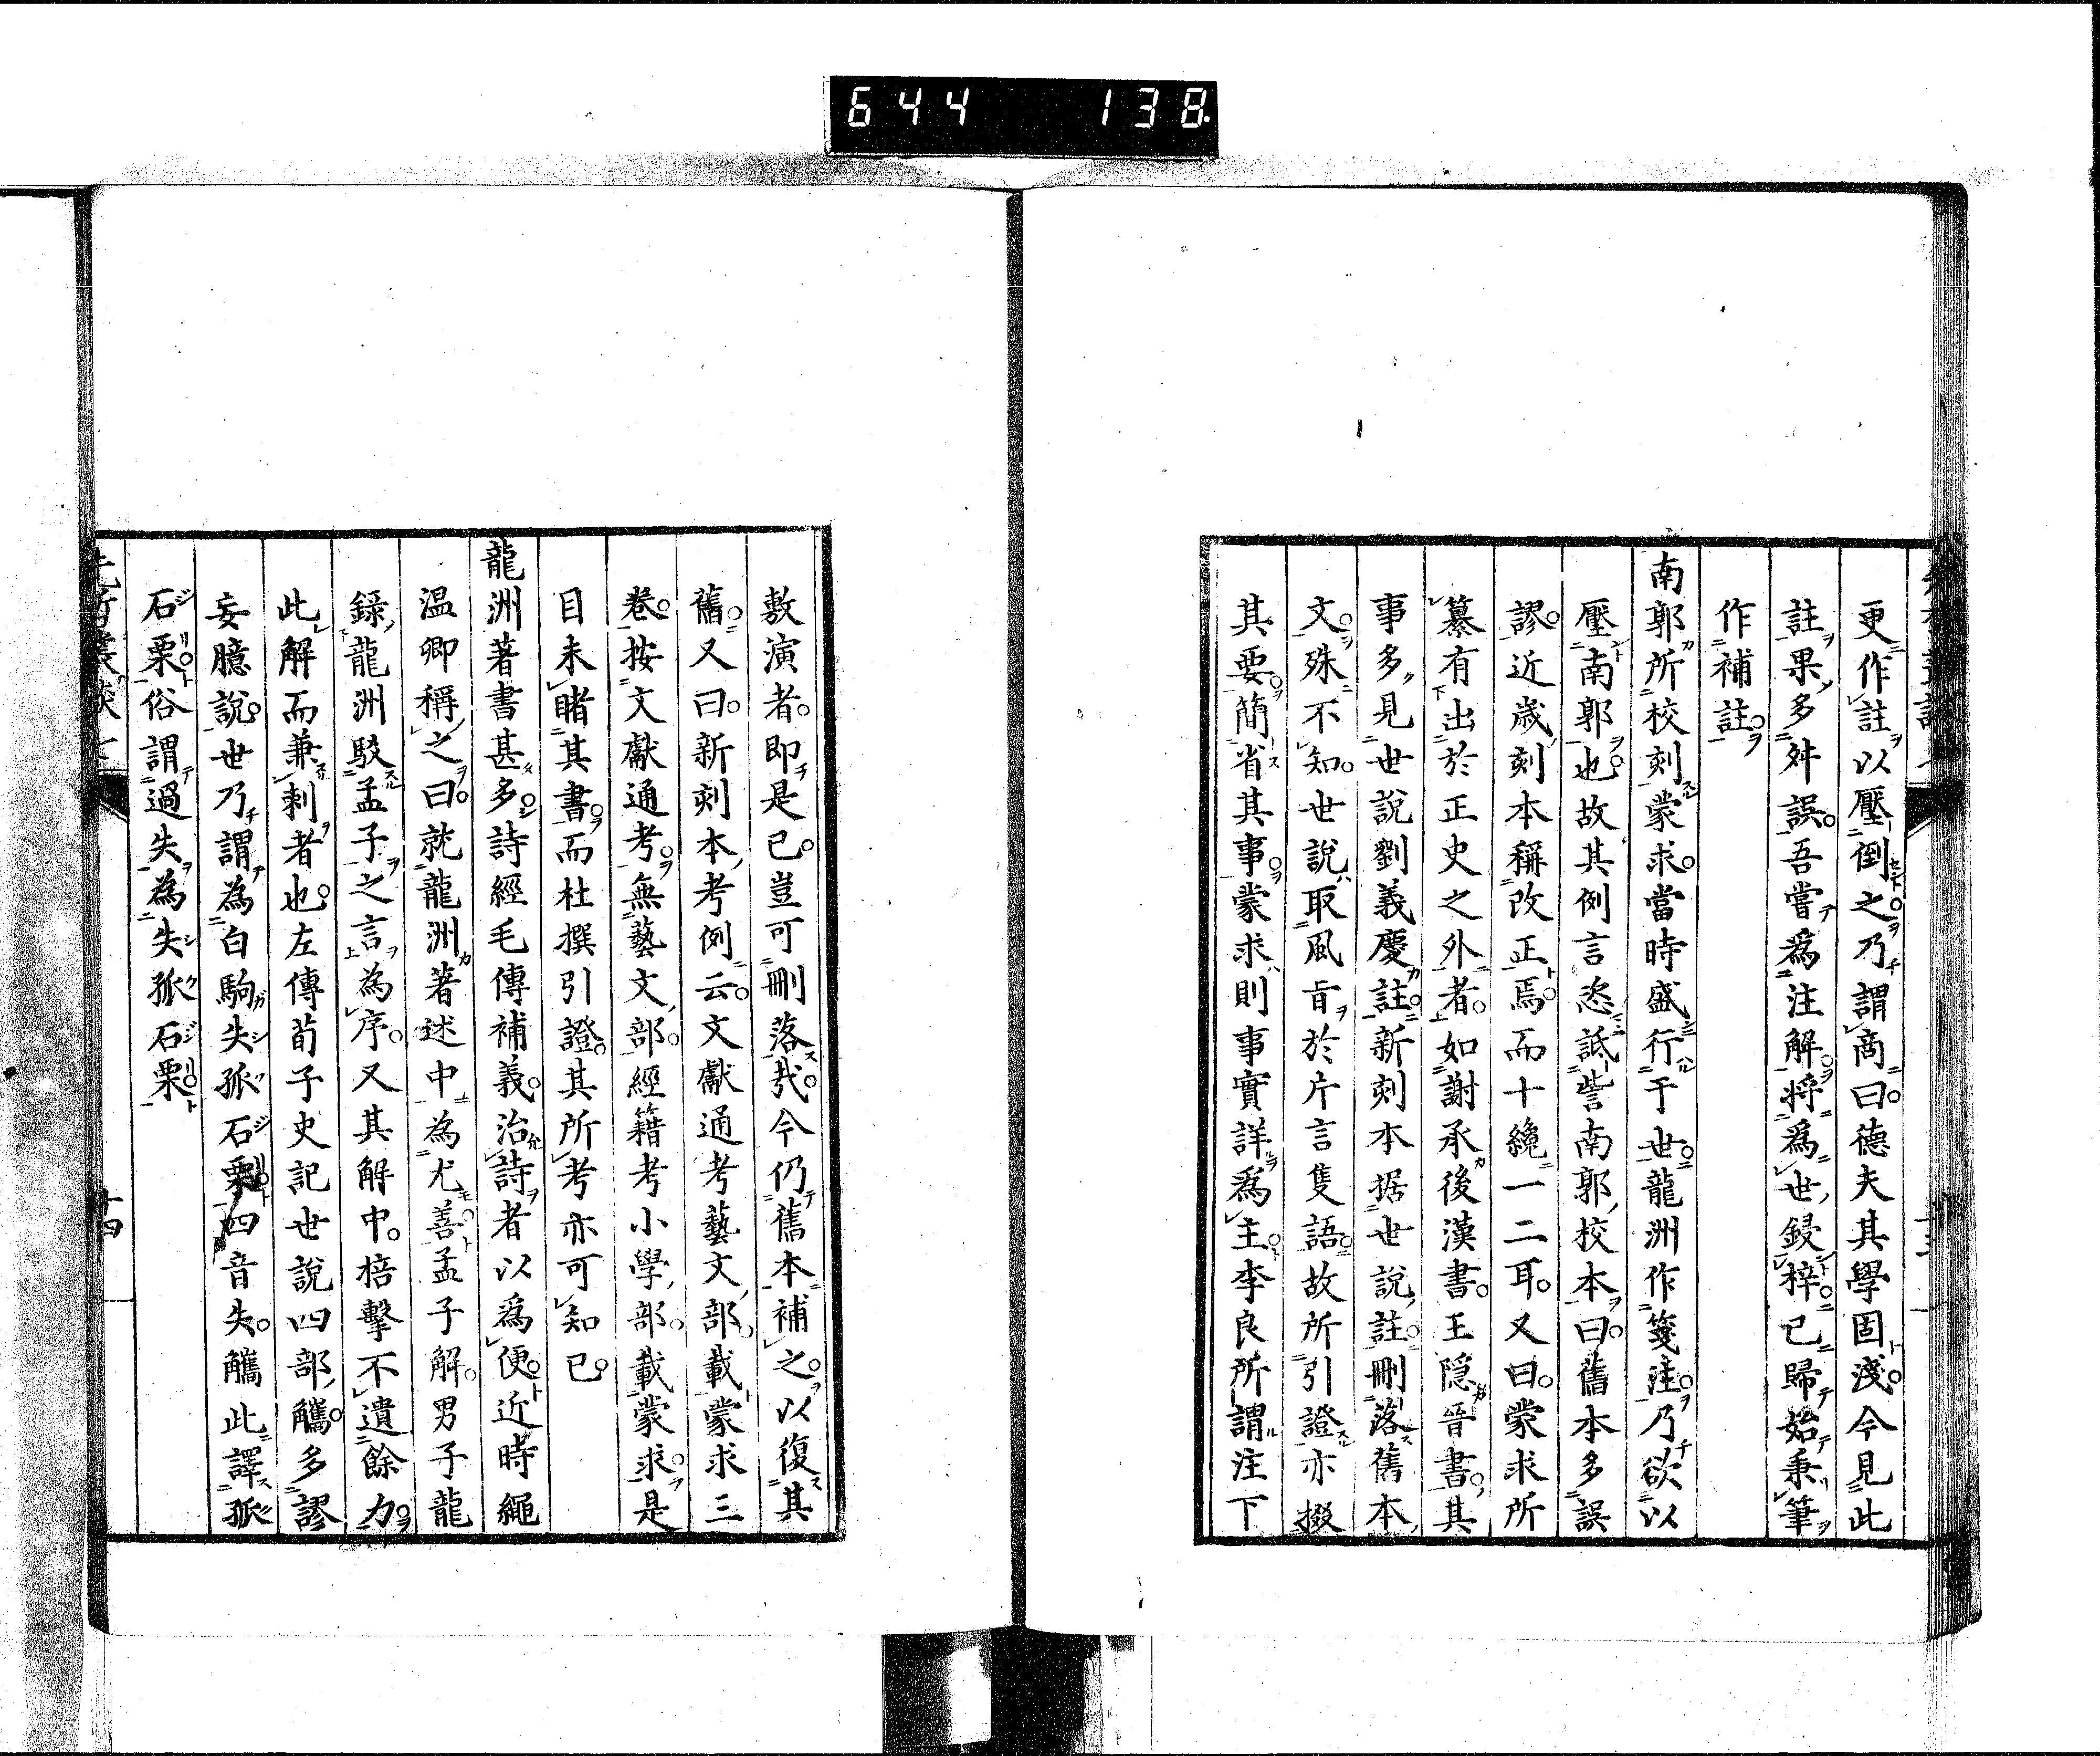 644 138
更作註以壓倒之乃謂商曰德夫其學固淺今見此
註果多舛誤吾嘗爲注解將爲世鋟梓已歸始秉筆
作補註
南郭所校刻蒙求當時盛行于世龍洲作箋注乃欲以
壓南郭也故其例言恣詆訾南郭校本曰舊本多誤
謬近歲刻本稱改正焉而十纔一二耳又曰蒙求所
纂有出於正史之外者如謝承後漢書王隱晉書其
事多見世說劉義慶註新刻本据世說註刪落舊本
文殊不知世說取風旨於片言隻語故所引證亦掇
其要簡省其事蒙求則事實詳爲主李良所謂注下
敷演者即是已豈可刪落哉今仍舊本補之以復其
舊又曰新刻本考例云文獻通考藝文部載蒙求三
卷按文獻通考無藝文部經籍考小學部載蒙求是
目未睹其書而杜撰引證其所考亦可知已
龍洲著書甚多詩經毛傳補義治詩者以爲便近時繩
温卿稱之曰就龍洲著述中為尤善孟子解男子龍
録龍洲駁孟子之言為序又其解中掊擊不遺餘力
此解而兼刺者也左傳荀子史記世說四部觿多謬
妄臆說世乃謂為白駒失孤石栗四音失觿此譯孤
石栗俗謂過失為失孤石栗
先哲叢談七
十四